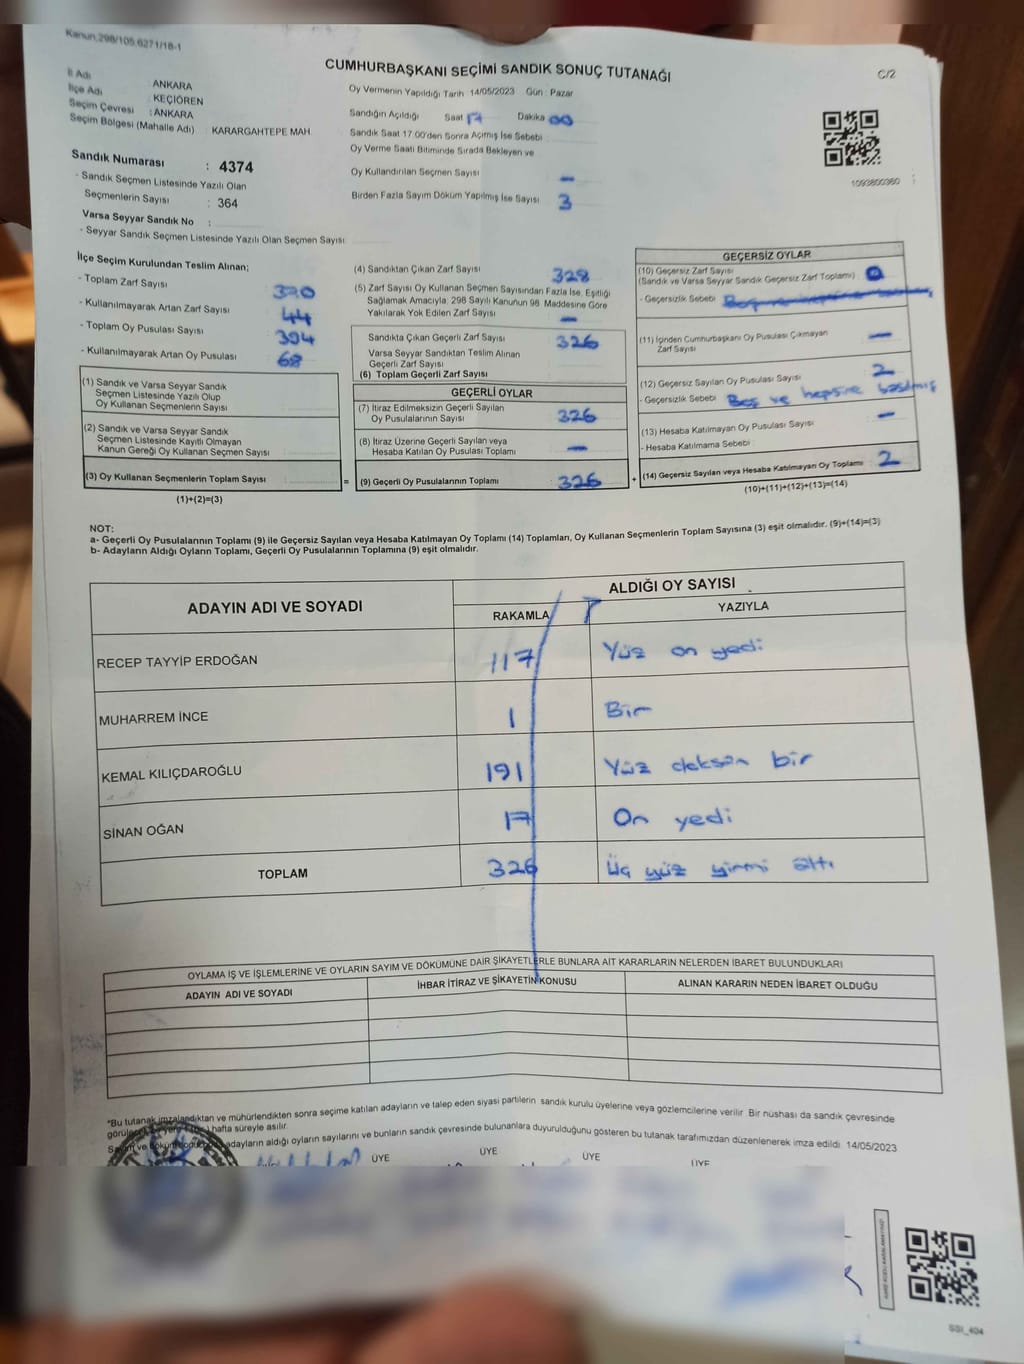 Kanun:298/105,6271/18-1
CUMHURBAŞKANI SEÇİMİ SANDIK SONUÇ TUTANAĞI
C/2
İl Adı : ANKARA
İlçe Adı : KEÇİÖREN
Seçim Çevresi : ANKARA
Seçim Bölgesi (Mahalle Adı) : KARARGAHTEPE MAH.
Sandık Numarası : 4374
- Sandık Seçmen Listesinde Yazılı Olan
Seçmenlerin Sayısı : 364
Varsa Seyyar Sandık No :
- Seyyar Sandık Seçmen Listesinde Yazılı Olan Seçmen Sayısı:
Oy Vermenin Yapıldığı Tarih 14/05/2023 Gün : Pazar
Sandığın Açıldığı Saat 17 Dakika 00
Sandık Saat 17.00'den Sonra Açılmış İse Sebebi
Oy Verme Saati Bitiminde Sırada Bekleyen ve
Oy Kullandırılan Seçmen Sayısı –
Birden Fazla Sayım Döküm Yapılmış İse Sayısı 3
1093800360
İlçe Seçim Kurulundan Teslim Alınan;
- Toplam Zarf Sayısı
- Kullanılmayarak Artan Zarf Sayısı 44
- Toplam Oy Pusulası Sayısı 394
- Kullanılmayarak Artan Oy Pusulası 68
(1) Sandık ve Varsa Seyyar Sandık
Seçmen Listesinde Yazılı Olup
Oy Kullanan Seçmenlerin Sayısı
(2) Sandık ve Varsa Seyyar Sandık
Seçmen Listesinde Kayıtlı Olmayan
Kanun Gereği Oy Kullanan Seçmen Sayısı
(3) Oy Kullanan Seçmenlerin Toplam Sayısı
(1)+(2)=(3)
=
(4) Sandıktan Çıkan Zarf Sayısı 328
(5) Zarf Sayısı Oy Kullanan Seçmen Sayısından Fazla İse, Eşitliği
Sağlamak Amacıyla, 298 Sayılı Kanunun 98. Maddesine Göre
Yakılarak Yok Edilen Zarf Sayısı –
Sandıkta Çıkan Geçerli Zarf Sayısı 326
Varsa Seyyar Sandıktan Teslim Alınan
Geçerli Zarf Sayısı
(6) Toplam Geçerli Zarf Sayısı
GEÇERLİ OYLAR
(7) İtiraz Edilmeksizin Geçerli Sayılan
Oy Pusulalarının Sayısı 326
(8) İtiraz Üzerine Geçerli Sayılan veya
Hesaba Katılan Oy Pusulası Toplamı –
(9) Geçerli Oy Pusulalarının Toplamı 326
+
GEÇERSİZ OYLAR
(10) Geçersiz Zarf Sayısı
(Sandık ve Varsa Seyyar Sandık Geçersiz Zarf Toplamı)
- Geçersizlik Sebebi
(11) İçinden Cumhurbaşkanı Oy Pusulası Çıkmayan
Zarf Sayısı –
(12) Geçersiz Sayılan Oy Pusulası Sayısı 2
- Geçersizlik Sebebi Boş ve hepsine basılmış
(13) Hesaba Katılmayan Oy Pusulası Sayısı –
- Hesaba Katılmama Sebebi
(14) Geçersiz Sayılan veya Hesaba Katılmayan Oy Toplamı 2
(10)+(11)+(12)+(13)=(14)
NOT:
a- Geçerli Oy Pusulalarının Toplamı (9) ile Geçersiz Sayılan veya Hesaba Katılmayan Oy Toplamı (14) Toplamları, Oy Kullanan Seçmenlerin Toplam Sayısına (3) eşit olmalıdır. (9)+(14)=(3)
b- Adayların Aldığı Oyların Toplamı, Geçerli Oy Pusulalarının Toplamına (9) eşit olmalıdır.
ADAYIN ADI VE SOYADI
ALDIĞI OY SAYISI
RAKAMLA YAZIYLA
RECEP TAYYİP ERDOĞAN 117 Yüz on yedi
MUHARREM İNCE 1 Bir
KEMAL KILIÇDAROĞLU 191 Yüz doksan bir
SİNAN OĞAN 17 On yedi
TOPLAM 326 Üç yüz yirmi altı
OYLAMA İŞ VE İŞLEMLERİNE VE OYLARIN SAYIM VE DÖKÜMÜNE DAİR ŞİKAYETLERLE BUNLARA AİT KARARLARIN NELERDEN İBARET BULUNDUKLARI
ADAYIN ADI VE SOYADI İHBAR İTİRAZ VE ŞİKAYETİN KONUSU ALINAN KARARIN NEDEN İBARET OLDUĞU
*Bu tutanak imzalandıktan ve mühürlendikten sonra seçime katılan adayların ve talep eden siyasi partilerin sandık kurulu üyelerine veya gözlemcilerine verilir. Bir nüshası da sandık çevresinde
hafta süreyle asılır.
adayların aldığı oyların sayılarını ve bunların sandık çevresinde bulunanlara duyurulduğunu gösteren bu tutanak tarafımızdan düzenlenerek imza edildi. 14/05/2023
ÜYE ÜYE ÜYE ÜYE
SSI_404